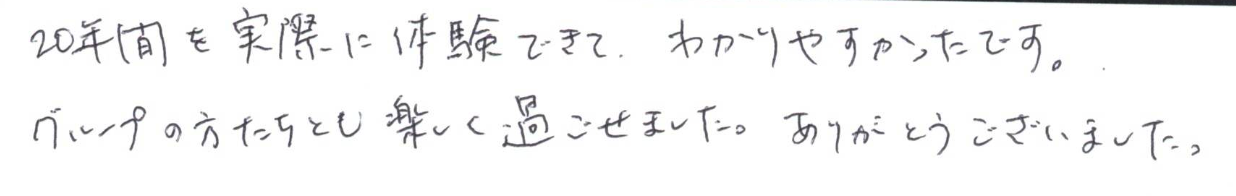 20年間を実際に体験できて、わかりやすかったです。
グループの方たちとも楽しく過ごせました。ありがとうございました。